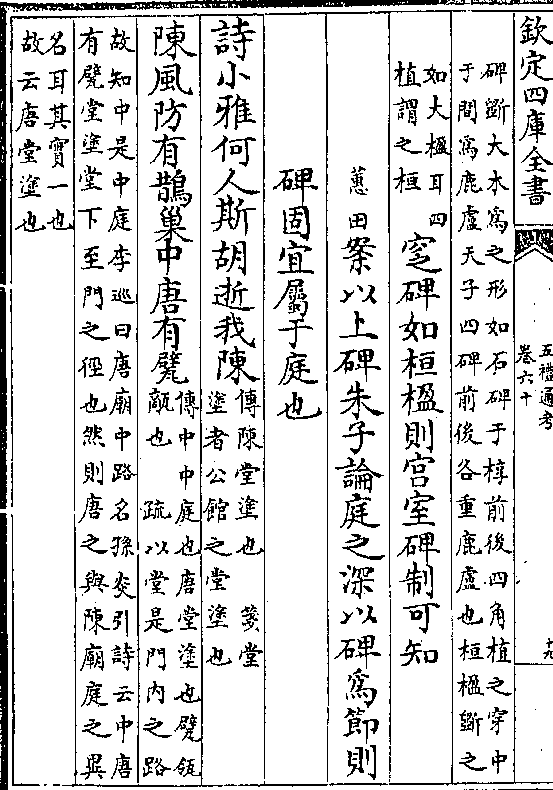 欽定四庫全書
五禮通考
卷六十
十九
碑斵大木爲之形如石碑于椁前後四角植之穿中
于間爲鹿盧天子四碑前後各重鹿盧也桓楹斵之
如大楹耳四
植謂之桓
窆碑如桓楹則宫室碑制可知
蕙田案以上碑朱子論庭之深以碑爲節則
碑固宜屬于庭也
詩小雅何人斯胡逝我陳
傳陳堂塗也 箋堂
塗者公館之堂塗也
陳風防有鵲巢中唐有甓
傳中中庭也唐堂塗也甓瓴
甋也 疏以堂是門内之路
故知中是中庭李巡曰唐廟中路名孫炎引詩云中唐
有甓堂塗堂下至門之徑也然則唐之與陳廟庭之異
名耳其實一也
故云唐堂塗也